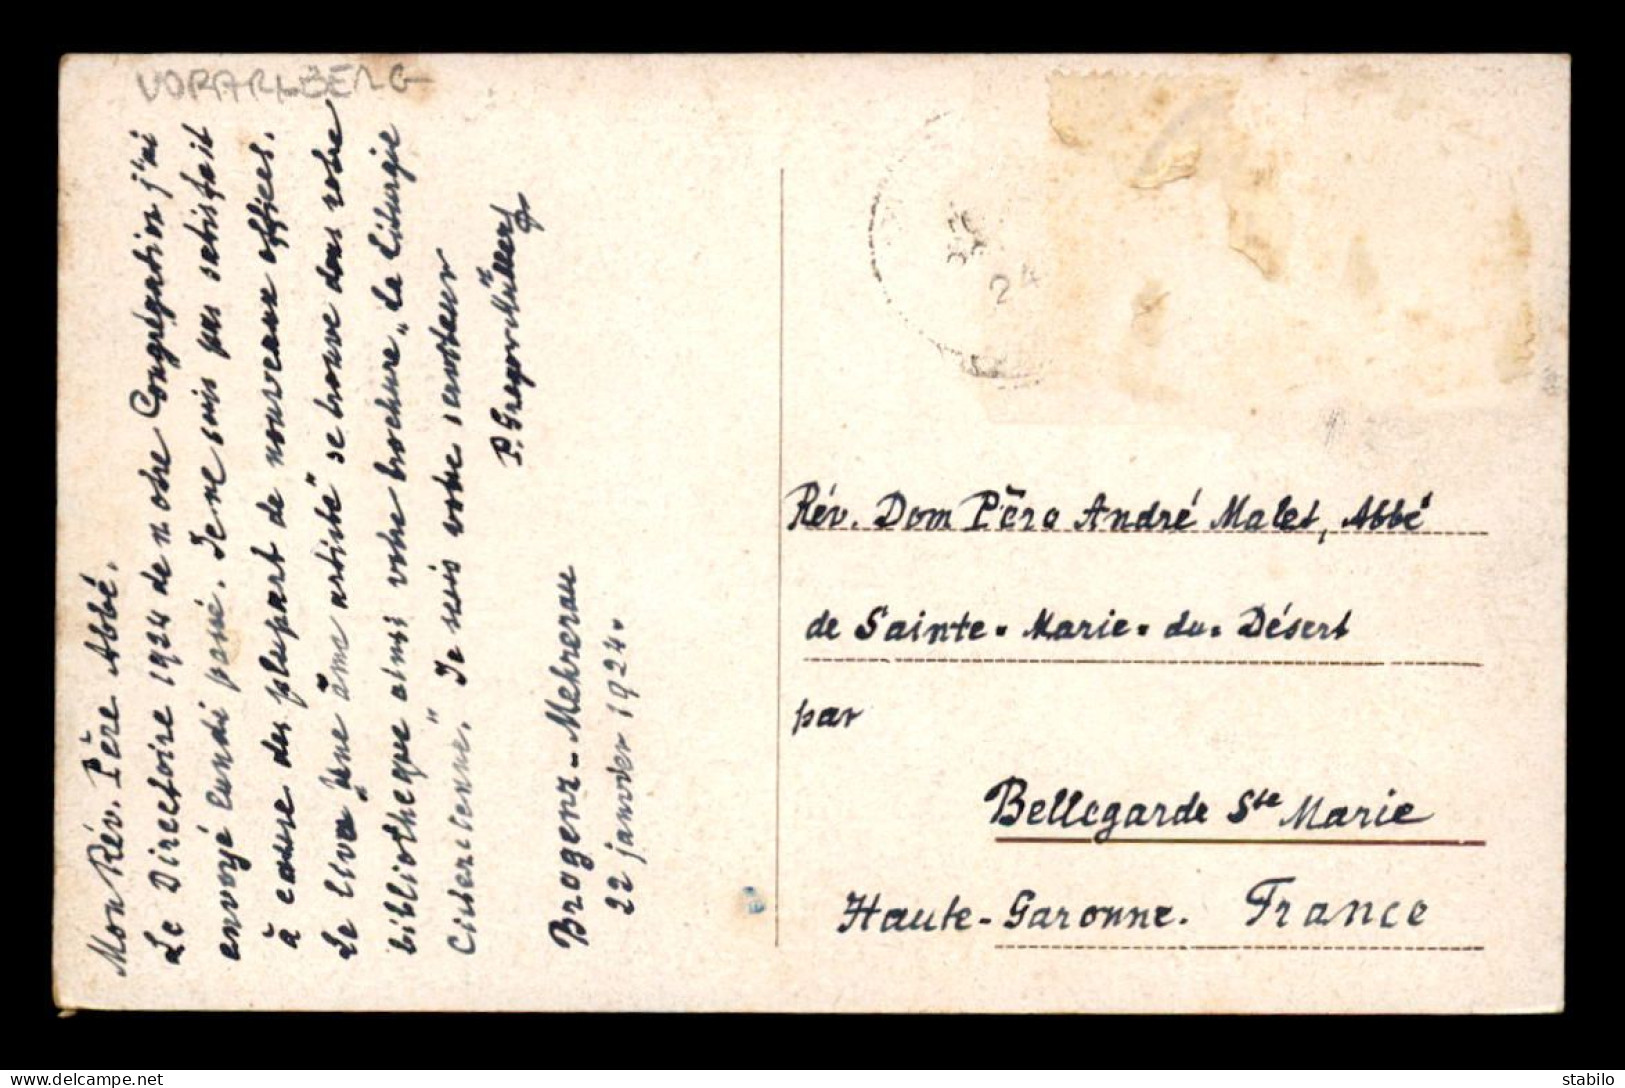 VORARLBERG
Mon Rév. Père Abbé.
Le Directoire 1924 de notre Congrégation j'ai
envoyé lundi passé. Je ne suis pas satisfait
à cause des plupart de nouveaux offices.
Le livre „Une âme artiste" se trouve dans votre
bibliotheque ainsi votre brochure „La Liturgie
Cistercienne." Je suis votre serviteur
P. Gregor Müller
Bregenz-Mehrerau
22 janvier 1924.
24
Rév. Dom Père André Malet, Abbé
de Sainte-Marie-du-Désert
par
Bellegarde Ste Marie
Haute-Garonne. France
stabilo